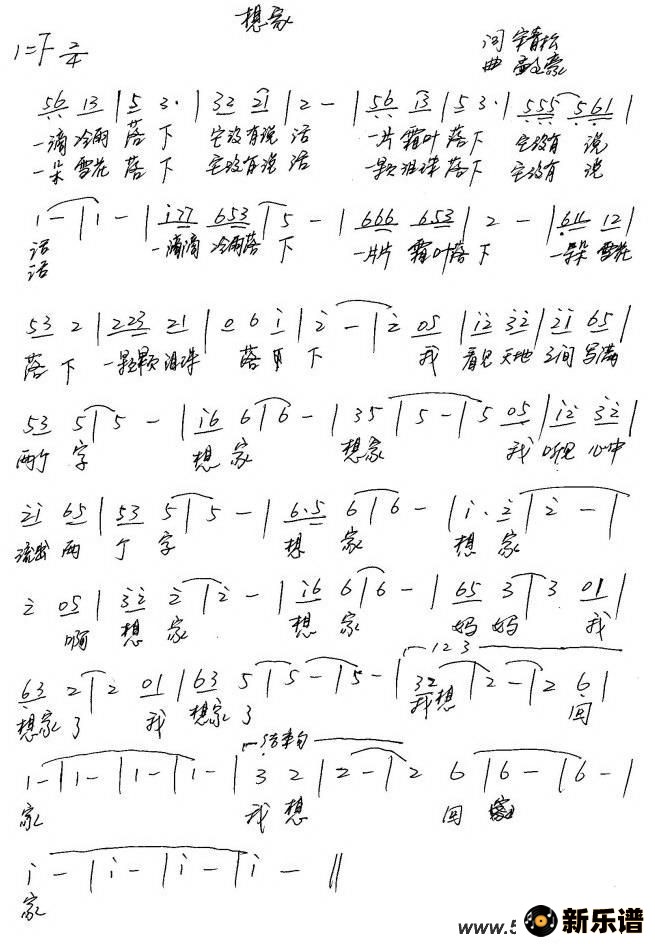 想家
1=F 2/4
词 宇青松
曲
56 13 | 5 3· | 32 21 | 2 - | 56 13 | 5 3· | 555 561 |
一滴 冷雨 落 下 它没有说 话 一片 霜叶 落下 它没有 说
一朵 雪花 落 下 它没有说 话 一颗 泪珠 落下 它没有 说
1 - | 1 - | i77 653 | 5 - | 666 653 | 2 - | 611 12 |
话 一滴滴 冷雨落 下 一片片 霜叶落 下 一朵朵 雪花
话
53 2 | 223 21 | 0 6 i | 2 - | 2 05 | i2 32 | 2i 65 |
落 下 一颗颗 泪珠 落 下 我 看见 天地 之间 写满
53 5 | 5 - | i6 6 | 6 - | 35 | 5 - | 5 05 | i2 32 |
两个 字 想 家 想家 我 听见 心中
2i 65 | 53 5 | 5 - | 6·5 6 | 6 - | i· 2 | 2 - |
流出 两 个 字 想 家 想 家
2 05 | 32 2 | 2 - | i6 6 | 6 - | 65 3 | 3 01 |
啊 想 家 想 家 妈 妈 我
123
63 2 | 2 01 | 63 5 | 5 - | 5 - | 32 | 2 - | 2 6 |
想家 了 我 想家 了 我想 回
结束句
1 - | 1 - | 1 - | 1 - | 1 - | 3 2 | 2 - | 2 6 | 6 - | 6 - |
家 我 想 回
i - | i - | i - | i - ||
家
www.5
新乐谱